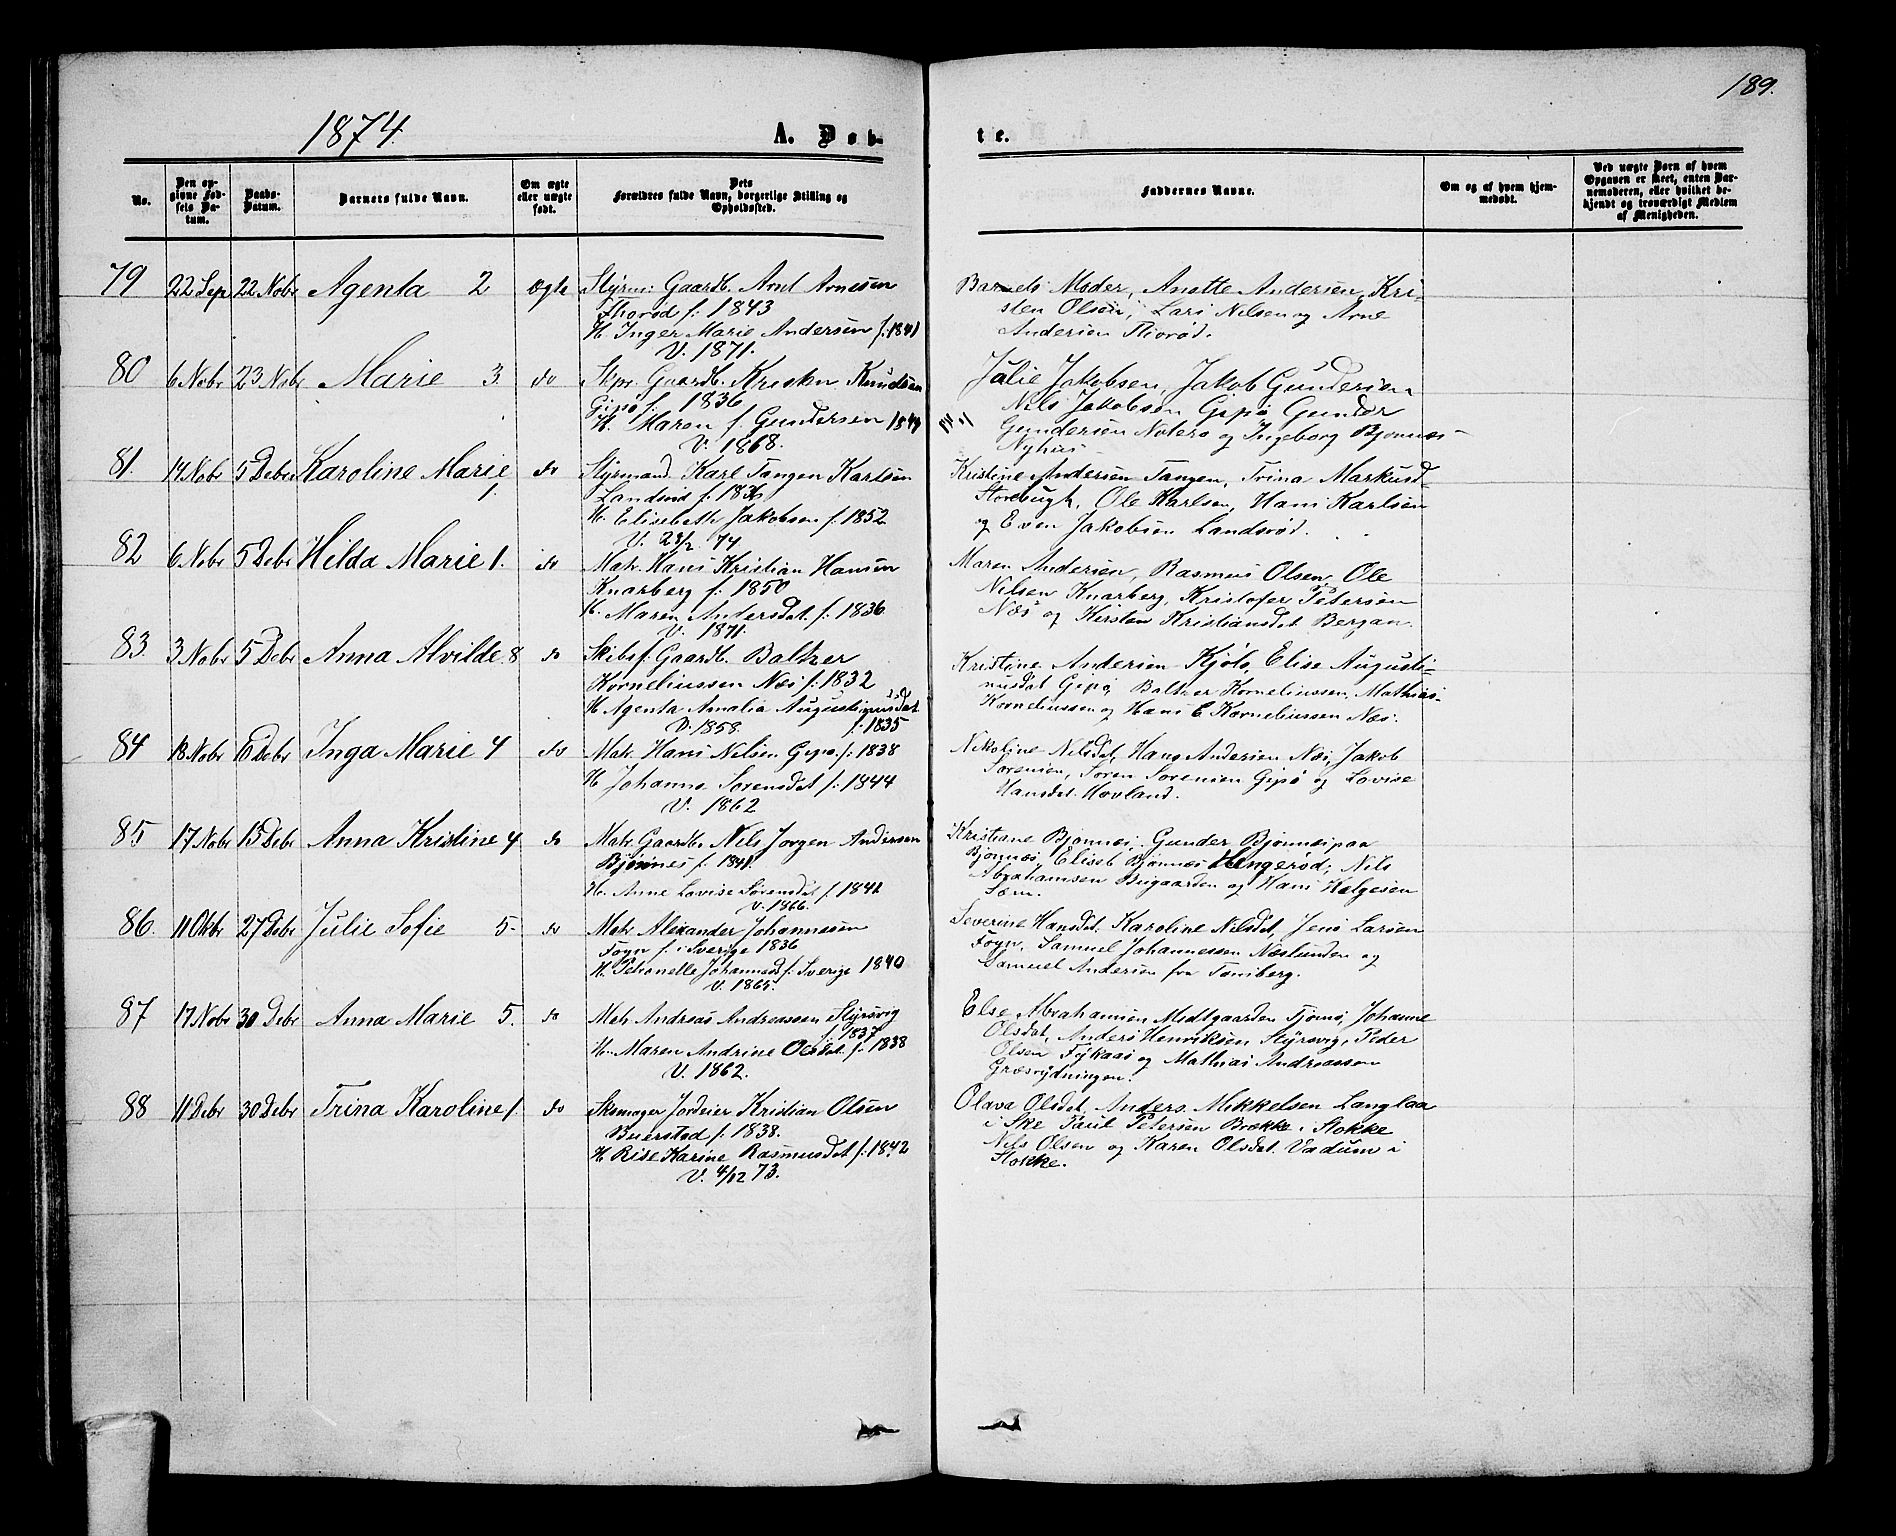 189.
1874.
A. Døb-
te.
No.
Den op-
givne Fød-
sels Da-
tum.
Daabs-
Datum.
Barnets fulde Navn.
Om ægte
eller uægte
født.
Dets
Forældres fulde Navn, borgerlige Stilling og
Opholdssted.
Faddernes Navne.
Om og af hvem hjem-
medøbt.
Ved uægte Børn af hvem
Opgaven er skeet, enten Bar-
nemoderen, eller hvilket be-
kjendt og troværdigt Medlem
af Menigheden.
79 22 Sep 22 Nobr Agenta 2 ægte Styrm: Gaardb. Arnt Arnesen
Thorød f: 1843
H. Inger Marie Andersen f: 1841
V. 1871.
Barnets Moder, Anette Andersen, Kri-
sten Olsen, Lars Nilsen og Arne
Andersen Thorød.
80 6 Nobr 23 Nobr Marie 3. do Skpr. Gaardb. Kristen Knudsen
Gipø f. 1836
H. Maren f. Gundersen 1844
V. 1868.
Julie Jakobsen, Jakob Gundersen
Nils Jakobsen Gipø Gunder
Gundersen Noterø og Ingeborg Bjønnæs-
Nyhus
81. 14 Nobr 5 Debr Karoline Marie 1. do Styrmand. Karl Tangen Karlsen
Landsrød f: 1836
H. Elisebeth Jakobsen f: 1852
V. 28/2 74
Kristine Andersen Tangen, Trina Markusd-
Storebugt, Ole Karlsen, Hans Karlsen
og Even Jakobsen Landsrød.
82 6 Nobr 5 Debr Hilda Marie 1. do Matr. Hans Kristian Hansen
Knarberg f: 1850
H. Maren Andersdat f: 1836
V. 1871.
Maren Andersen, Rasmus Olsen, Ole
Nilsen Knarberg, Kristofer Petersen
Næs og Kirsten Kristiansdat Bergan.
83. 3 Nobr 5 Debr Anna Alvilde 8 do Skibsf. Gaardb. Baltzer
Korneliussen Næs f: 1832
H. Agenta Amalia Augustinusdat
V. 1858. f: 1835
Kristine Andersen Kjøle, Elise Augusti-
nusdat Gipø, Baltzer Korneliussen, Mathias
Korneliussen og Hans E. Korneliussen Næs.
84 18 Nobr Debr Inga Marie 4 do Matr. Hans Nilsen Gipø f: 1838
H. Johanne Sørensdat f: 1844
V. 1862
Nikoline Nilsdat, Hans Andersen Næs, Jakob
Sørensen, Søren Sørensen Gipø og Lovise
Hansdat Hovland.
85 17 Nobr 15 Debr Anna Kristine 4 do Matr. Gaardb. Nils Jørgen Andersen
Bjønnes f: 1841.
H. Anne Lovise Sørensdt f: 1842
V. 1866.
Kristiane Bjønnes, Gunder Bjønnespaa
Bjønnæs, Elisb Bjønnæs Hengerød; Nils
Abrahamsen Bugaarden og Hans Helgesen
Sem.
86. 11 Oktr 27 Debr Julie Sofie 5. do Matr. Alexander Johannesen
Fogn f: i Sverige 1836
H. Petronelle Johannesd f: Sverige 1840
V. 1865.
Severine Hansdat, Karoline Nilsdat, Jens Larsen
Fogn, Samuel Johannessen Næslunden og
Samuel Andersen fra Tønsberg.
87 17 Nobr 30 Debr Anna Marie 5. do Matr Andreas Andreassen Styrsvig
f: 1837
H. Maren Andrine Olsdat f: 1838
V. 1862.
Else Abrahamsen Midtgaarden Tjømø, Johanne
Olsdat, Anders Henriksen Styrsvig, Peder
Olsen Fykaas og Mathias Andreassen
Græsrydningen.
88 11 Debr 30 Debr Trina Karoline 1. do Skomager Jordeier Kristian Olsen
Buerstad f: 1838.
H. Rise Karine Rasmusdat f: 1842
V. 4/12 73.
Olava Olsdat, Anders Mikkelsen Langlaa
i Ske Paul Petersen Brække i Stokke
Nils Olsen og Karen Olsdat Vadum i
Stokke.